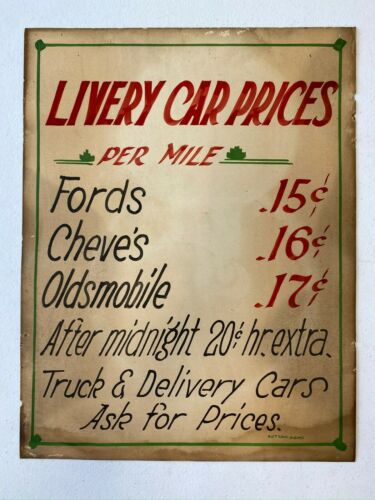 LIVERY CAR PRICES
PER MILE
Fords .15¢
Cheve's .16¢
Oldsmobile .17¢
After midnight 20¢ hr. extra.
Truck & Delivery Cars
Ask for Prices.